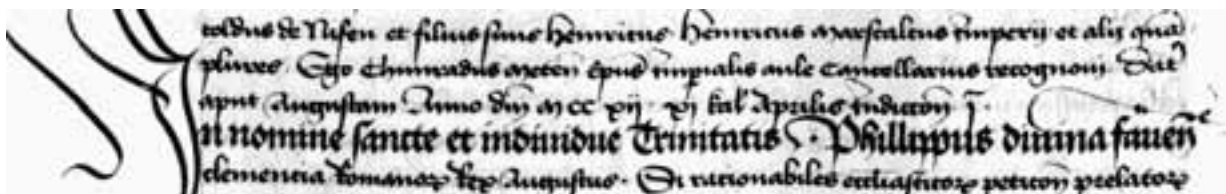 toldus de Nifen et filius suus Heinricus Heinricus marscalcus imperii et alii quā
plures · Ego Chunradus Meten̄ ep̄us imp̄ialis aule Cancellarius recognoui · Dat̄
aput Augustam Anno dn̄i M CC xij · xj kal̄ Aprilis Indictōn j ·
In nomine sancte et indiuidue Trinitatis · Phillippus diuina fauen̄te
clementia Romanoꝝ Rex Augustus · Si rationabiles eccl̄iasticoꝝ peticōn prelatoꝝ